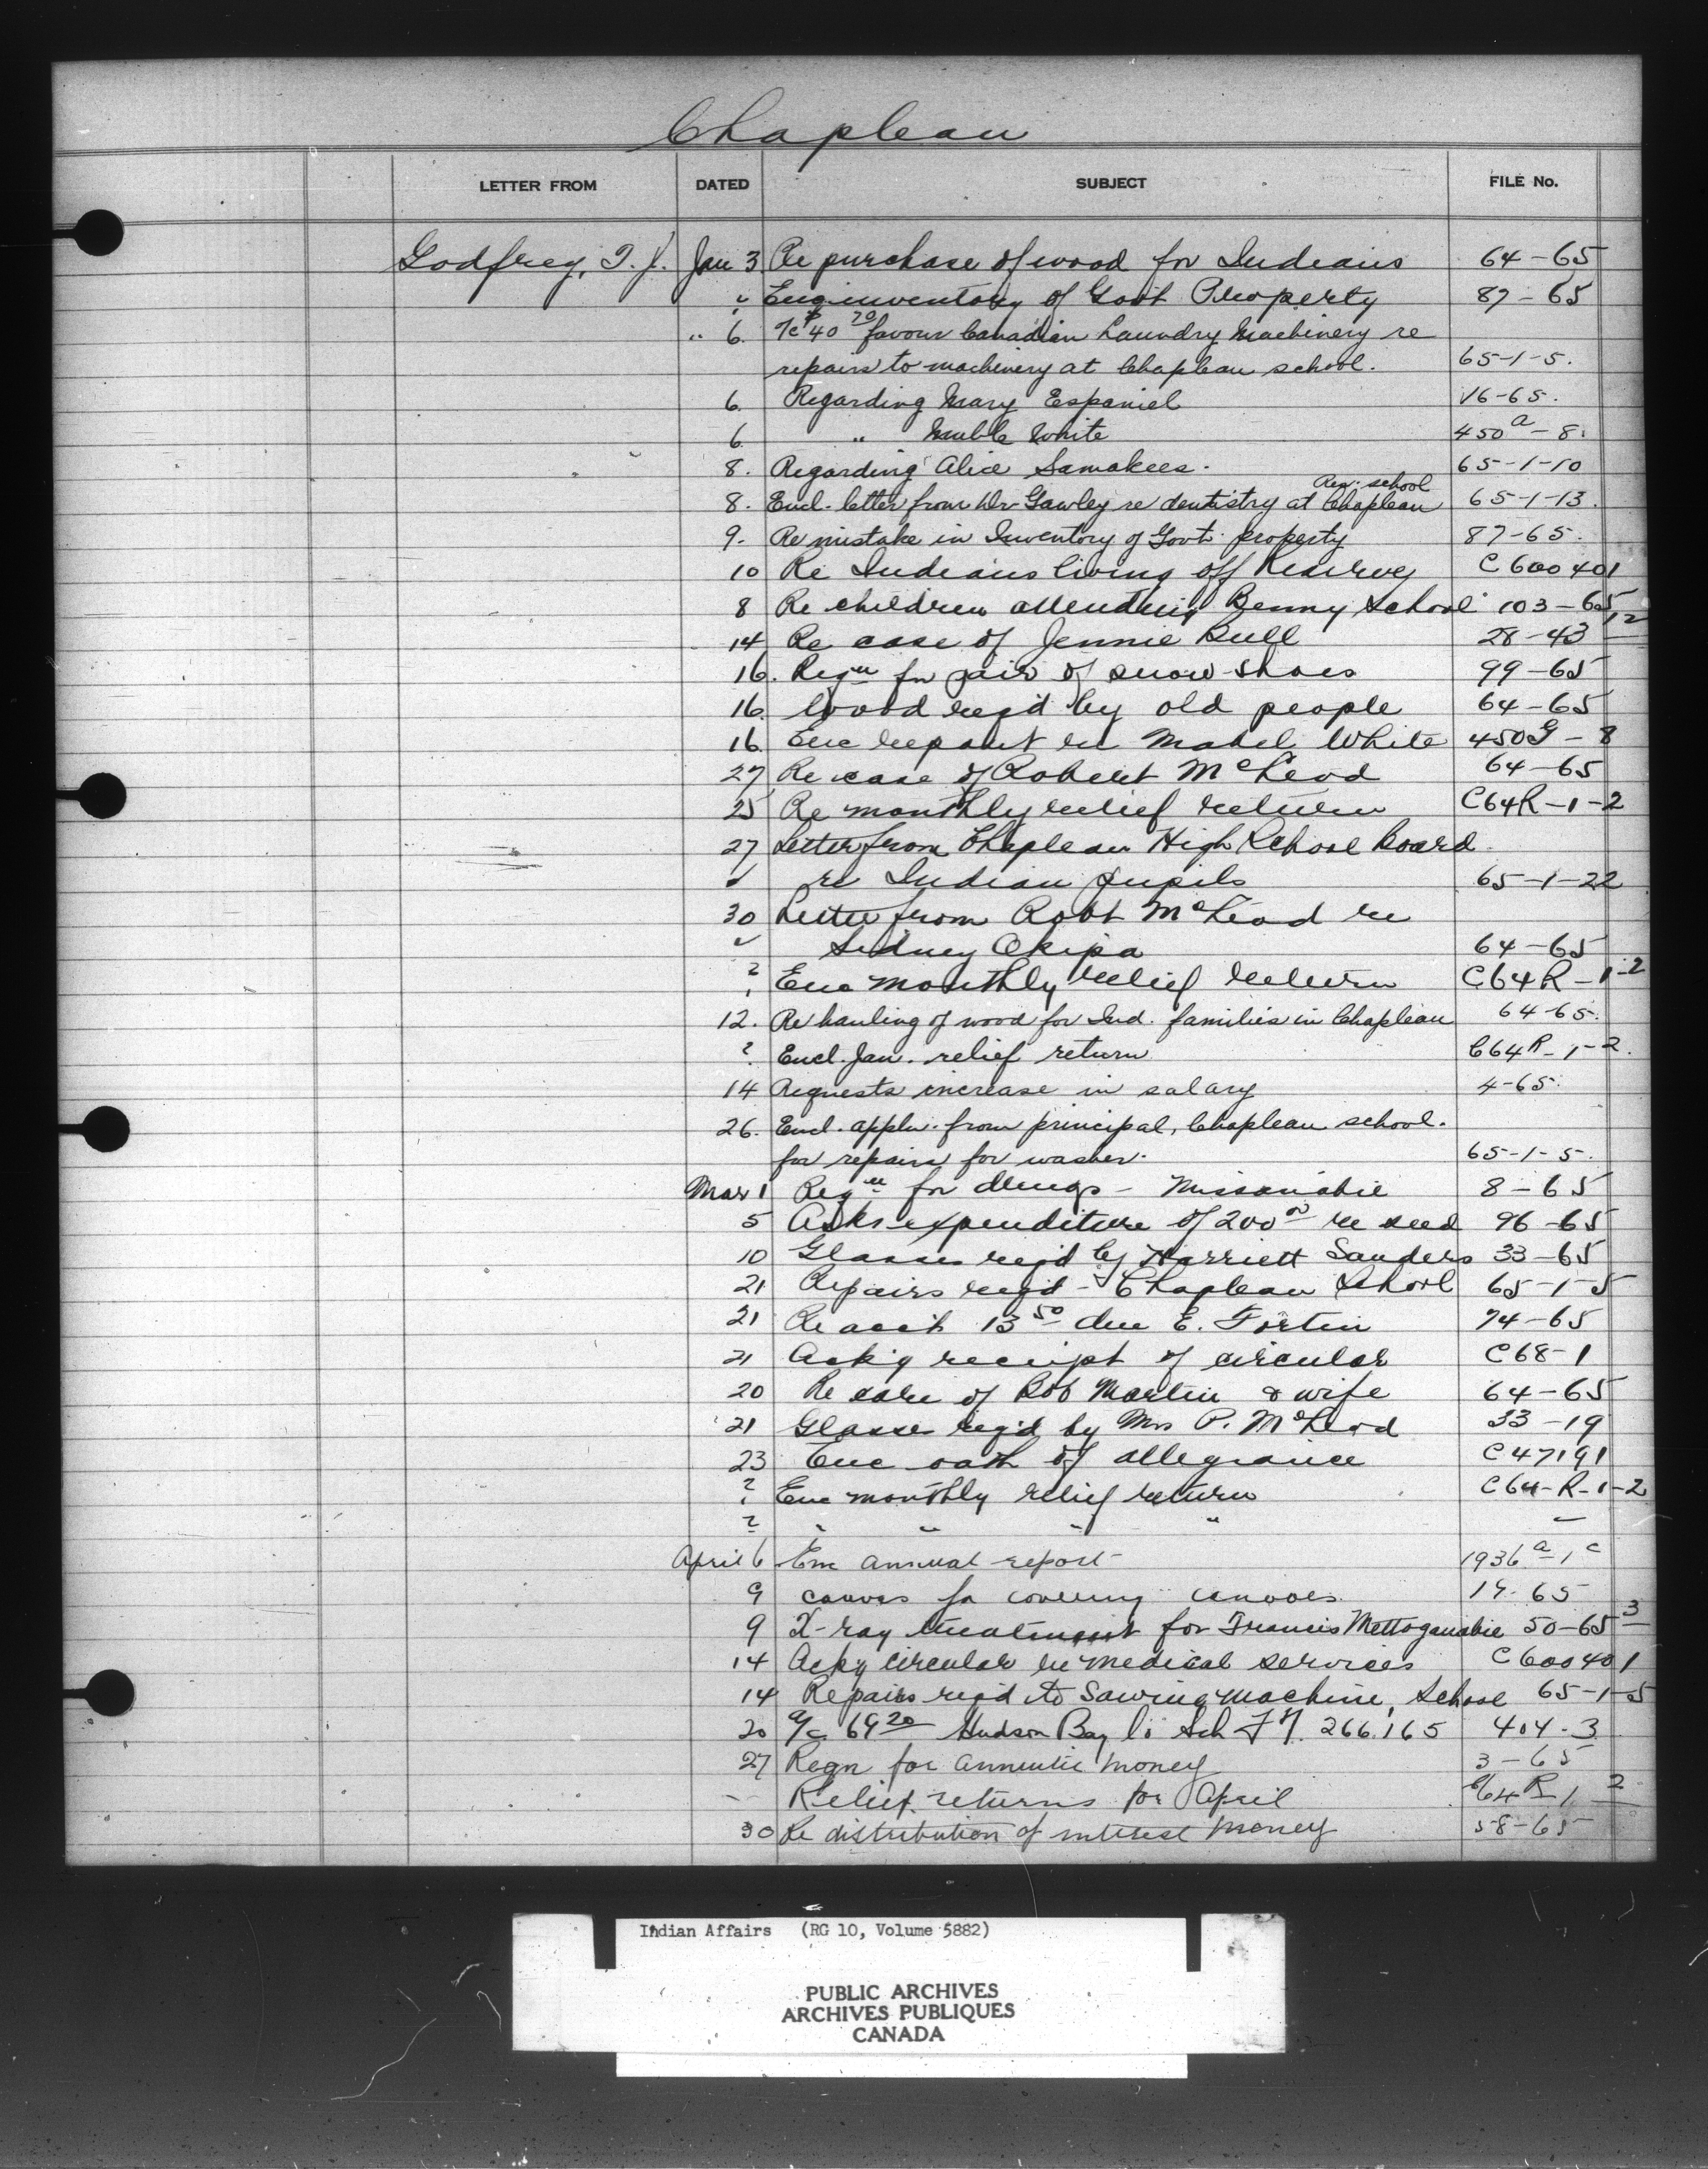 Chapleau
LETTER FROM DATED SUBJECT FILE No.
Godfrey, T. J. Jan 3 Re purchase of wood for Indians 64-65
? Enc inventory of Govt Property 87-65
" 6. a/c $40 70 favour Canadian Laundry Machinery re
repairs to machinery at Chapleau school. 65-1-5.
6. Regarding Mary Espaniel 16-65.
6 " Mable White 450 a-8.
8. Regarding Alice Samakees. 65-1-10
Res. school
8. Encl. letter from Dr Gawley re dentistry at Chapleau 65-1-13.
9. Re mistake in Inventory of Govt. property 87-65.
10 Re Indians living off Reserve C 600401
8 Re children attending Benny School 103-65 12
14 Re case of Jennie Bull 28-43
16. Reqn for pair of snow shoes 99-65
16. Wood req'd by old people 64-65
16 Enc report re Mabel White 450G-8
27 Re case of Robert McLeod 64-65
25 Re monthly relief return C64R-1-2
27 Letter from Chapleau High School Board
re Indian pupils 65-1-22
30 Letter from Robt McLeod re
Sidney Okipa 64-65
? Enc monthly relief return C64R-1-2
12. Re hauling of wood for Ind. families in Chapleau 64-65.
? Encl. Jan. relief return C64R-1-2.
14 Requests increase in salary 4-65.
26. Encl. appln. from principal, Chapleau school.
for repairs for washer. 65-1-5.
Mar 1 Reqn for drugs - Missanabie 8-65
5 Asks expenditure of 200 00 re seed 96-65
10 Glasses req'd by Harriett Sanders 33-65
21 Repairs req'd - Chapleau School 65-1-5
21 Re acct 13 50 due E. Fortin 74-65
21 Ack'g receipt of circular C68-1
20 Re care of Bob Martin & wife 64-65
21 Glasses req'd by Mrs P. McLeod 33-19
23 Enc oath of allegiance C47191
? Enc monthly relief return C64-R-1-2
? " " " "
April 6 Enc annual report 1936 a-1 c
9 canvas for covering canoes 19-65
9 X-ray treatment for Francis Mettaganabie 50-65 3
14 Ackg circular re medical services C600401
14 Repairs req'd to Sawing machine, School 65-1-5
20 a/c 69 20 Hudson Bay Co Sch F 7. 266.165 404-3
27 Reqn for annuitie money 3-65
Relief returns for April C64R-1-2
30 Re distribution of interest money 58-65
Indian Affairs (RG 10, Volume 5882)
PUBLIC ARCHIVES
ARCHIVES PUBLIQUES
CANADA